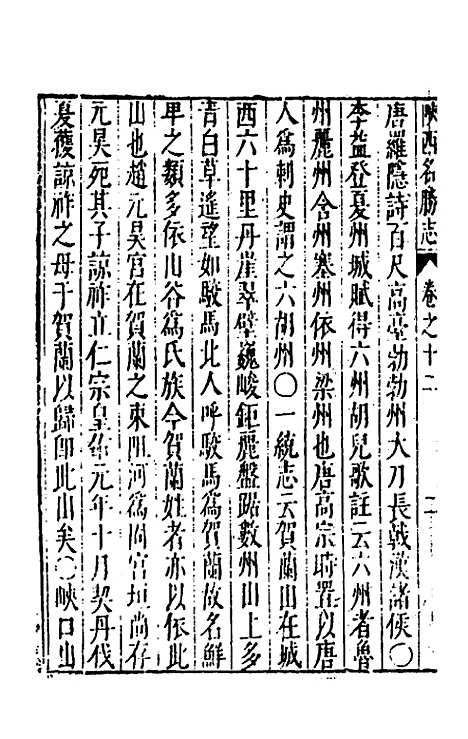 陝西名勝志 卷之十二 二
唐羅隱詩百尺高臺勃勃州大刀長戟漢諸侯〇
李益登夏州城賦得六州胡兒歌註云六州者魯
州麗州含州塞州依州梁州也唐高宗時置以唐
人爲刺史謂之六胡州〇一統志云賀蘭山在城
西六十里丹崖翠壁巍峻鉅麗盤踞數州山上多
青白草遙望如駮馬北人呼駮馬爲賀蘭故名鮮
卑之類多依山谷爲氏族今賀蘭姓者亦以依此
山也趙元昊宮在賀蘭之東阻河爲固宮垣尚存
元昊死其子諒祚立仁宗皇祐元年十月契丹伐
夏獲諒祚之母于賀蘭以歸即此山矣〇峽口山